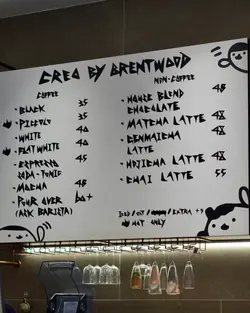 CREO BY BRENTWOOD
COFFEE
BLACK 35
PICCOLO 35
WHITE 40
FLAT WHITE 40
ESPRESSO 45
SODA-TONIC
MOCHA 48
POUR OVER 60+
(ASK BARISTA)
NON-COFFEE
HOUSE BLEND 48
CHOCOLATE
MATCHA LATTE 48
GENMAICHA 48
LATTE
HOJICHA LATTE 48
CHAI LATTE 55
EXTRA +9
HOT ONLY